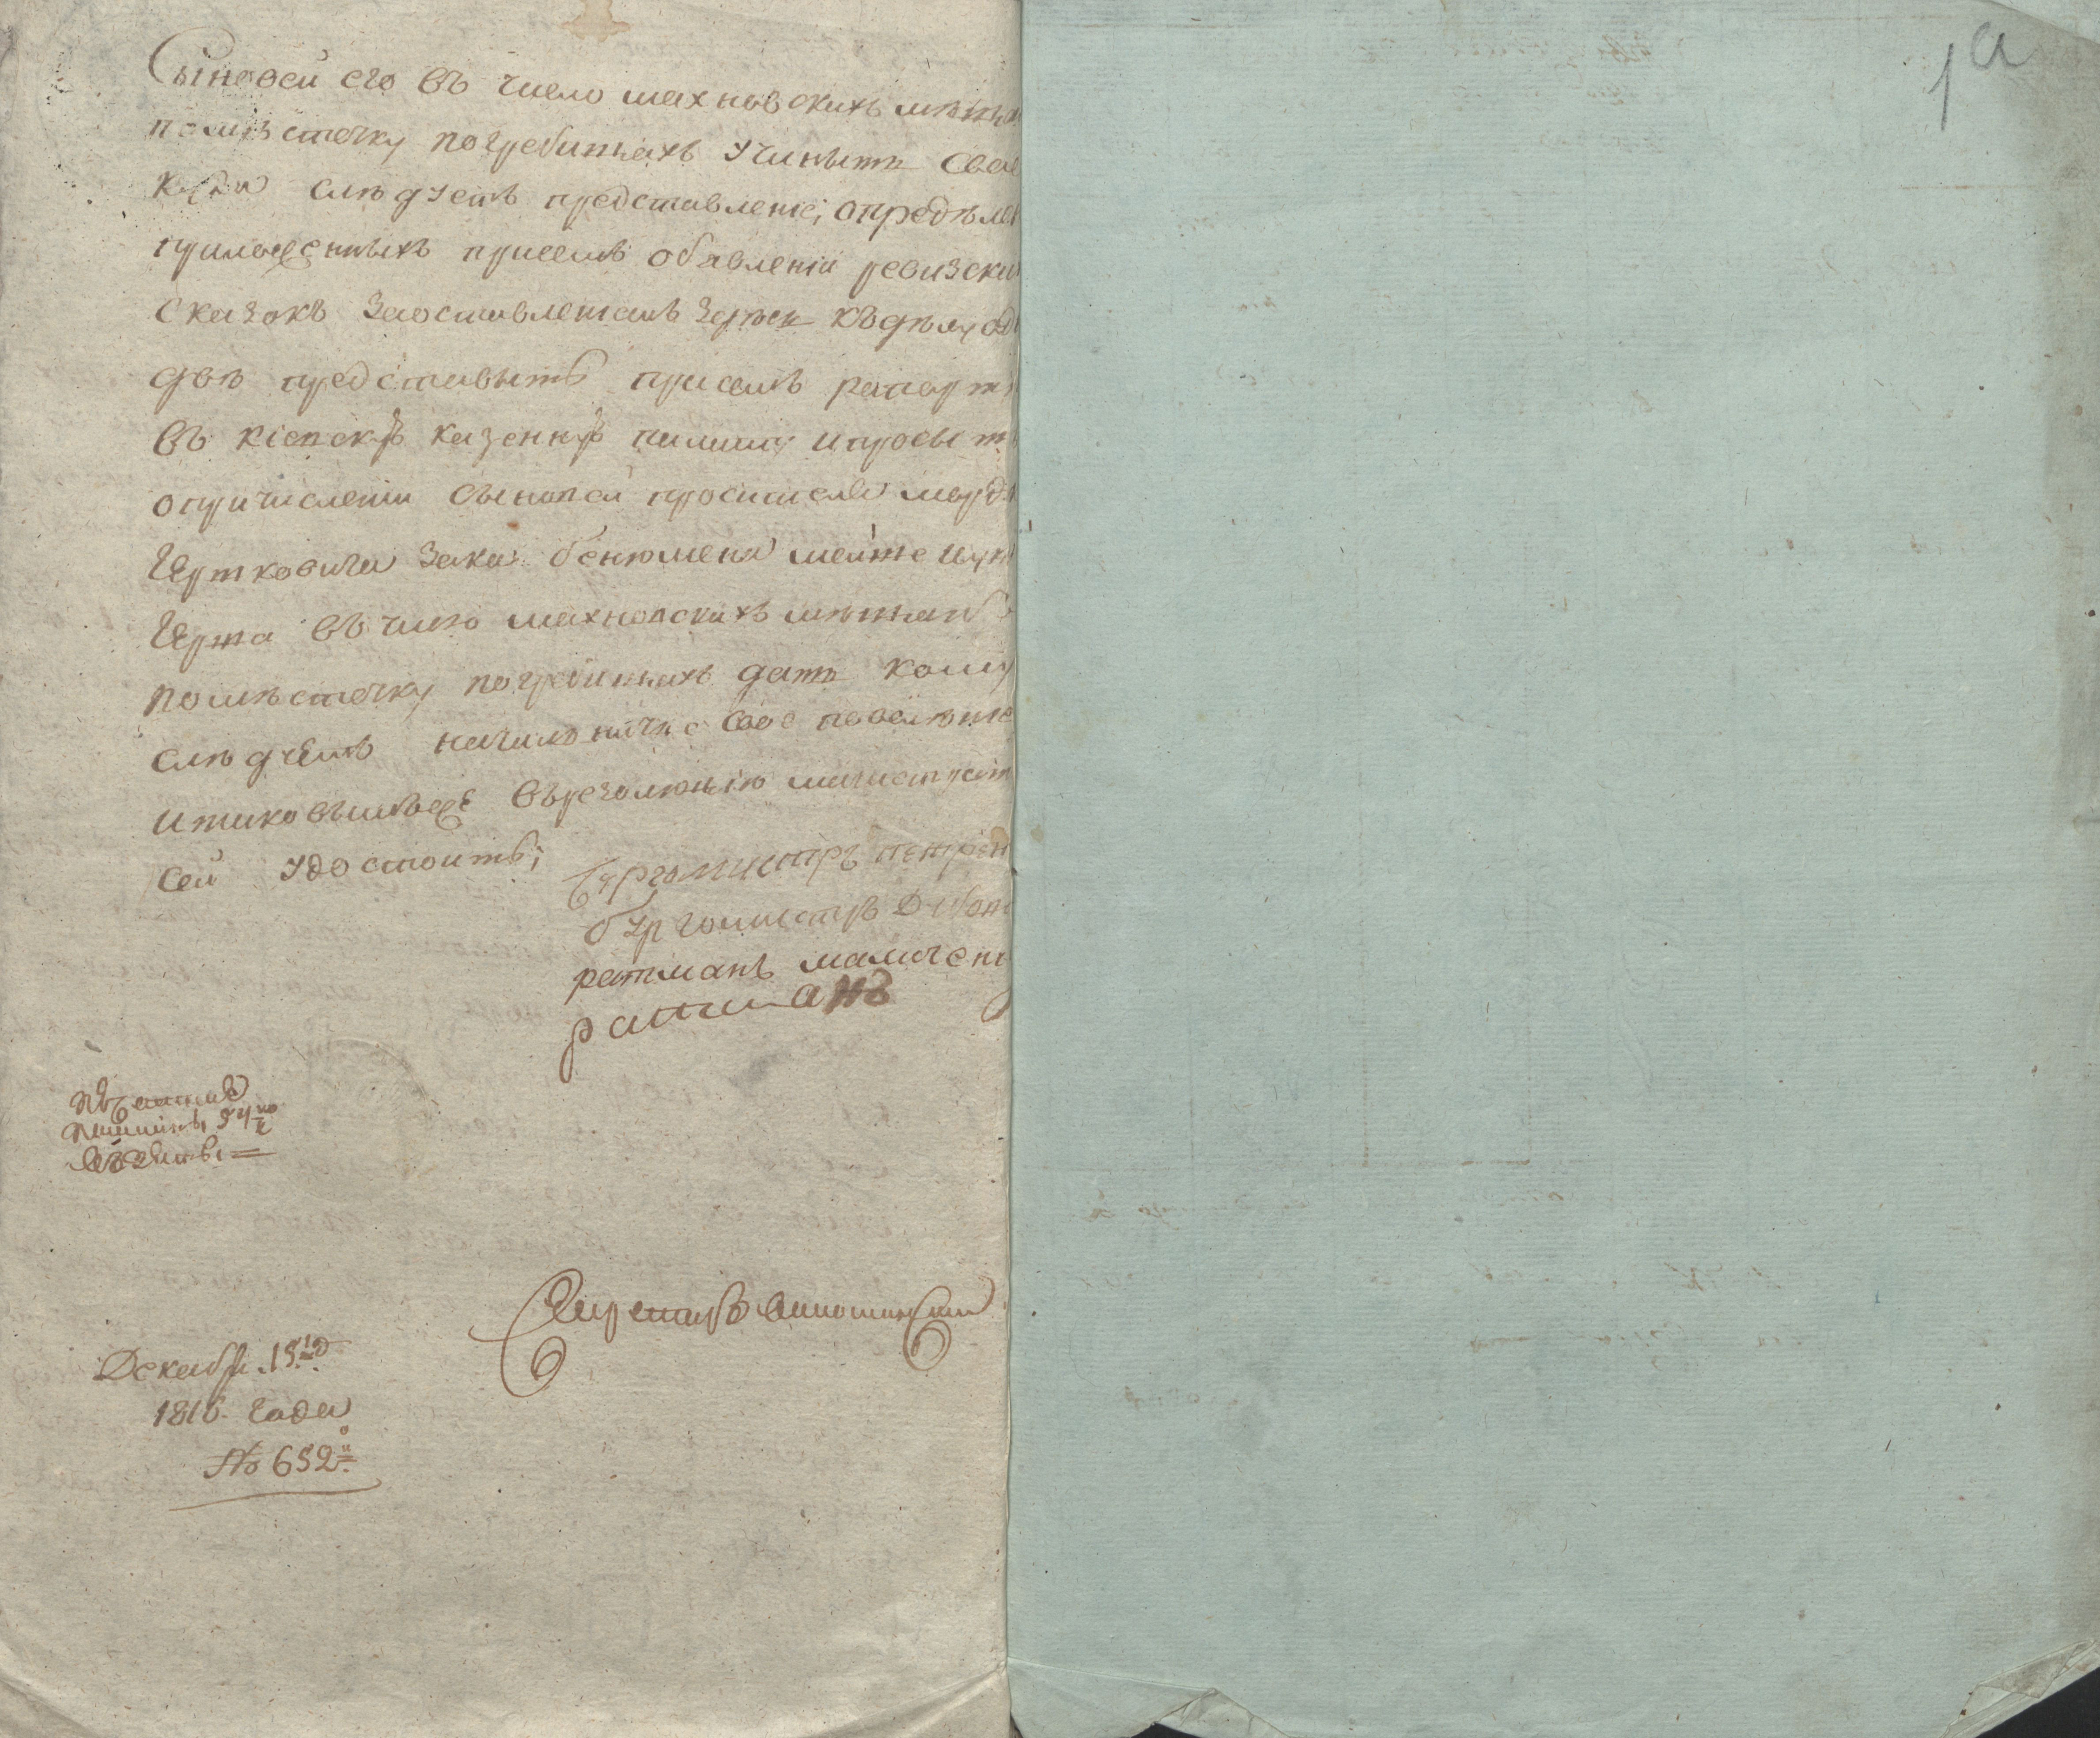 Сыновей его въ число махновскихъ мѣща
помѣстечку погребищахъ учинить свое
куда слѣдуетъ представленіе; опредѣле
приложенныхъ присемъ объявленіи ревизски
сказокъ заоставленіемъ здѣсь къдѣлу од
двѣ представить присемъ рапортѣ
въ кіевскую казенную палату ипросить
опричисленіи сыновей просителя мор
Гертковича Зака: бенюмена
Герта въ число махновскихъ мѣщанъ
помѣстечку погребищахъ дать кому
слѣдуетъ начальничее свое повеленіе
итаковымъже върезолюцію магистратъ
сей удостоить;
бургомистръ петрен
бургомистръ Дибен
ратманъ мамчен
ратманъ
Секретарь
Декабря 15го
1816. Года
№ 652й
1а